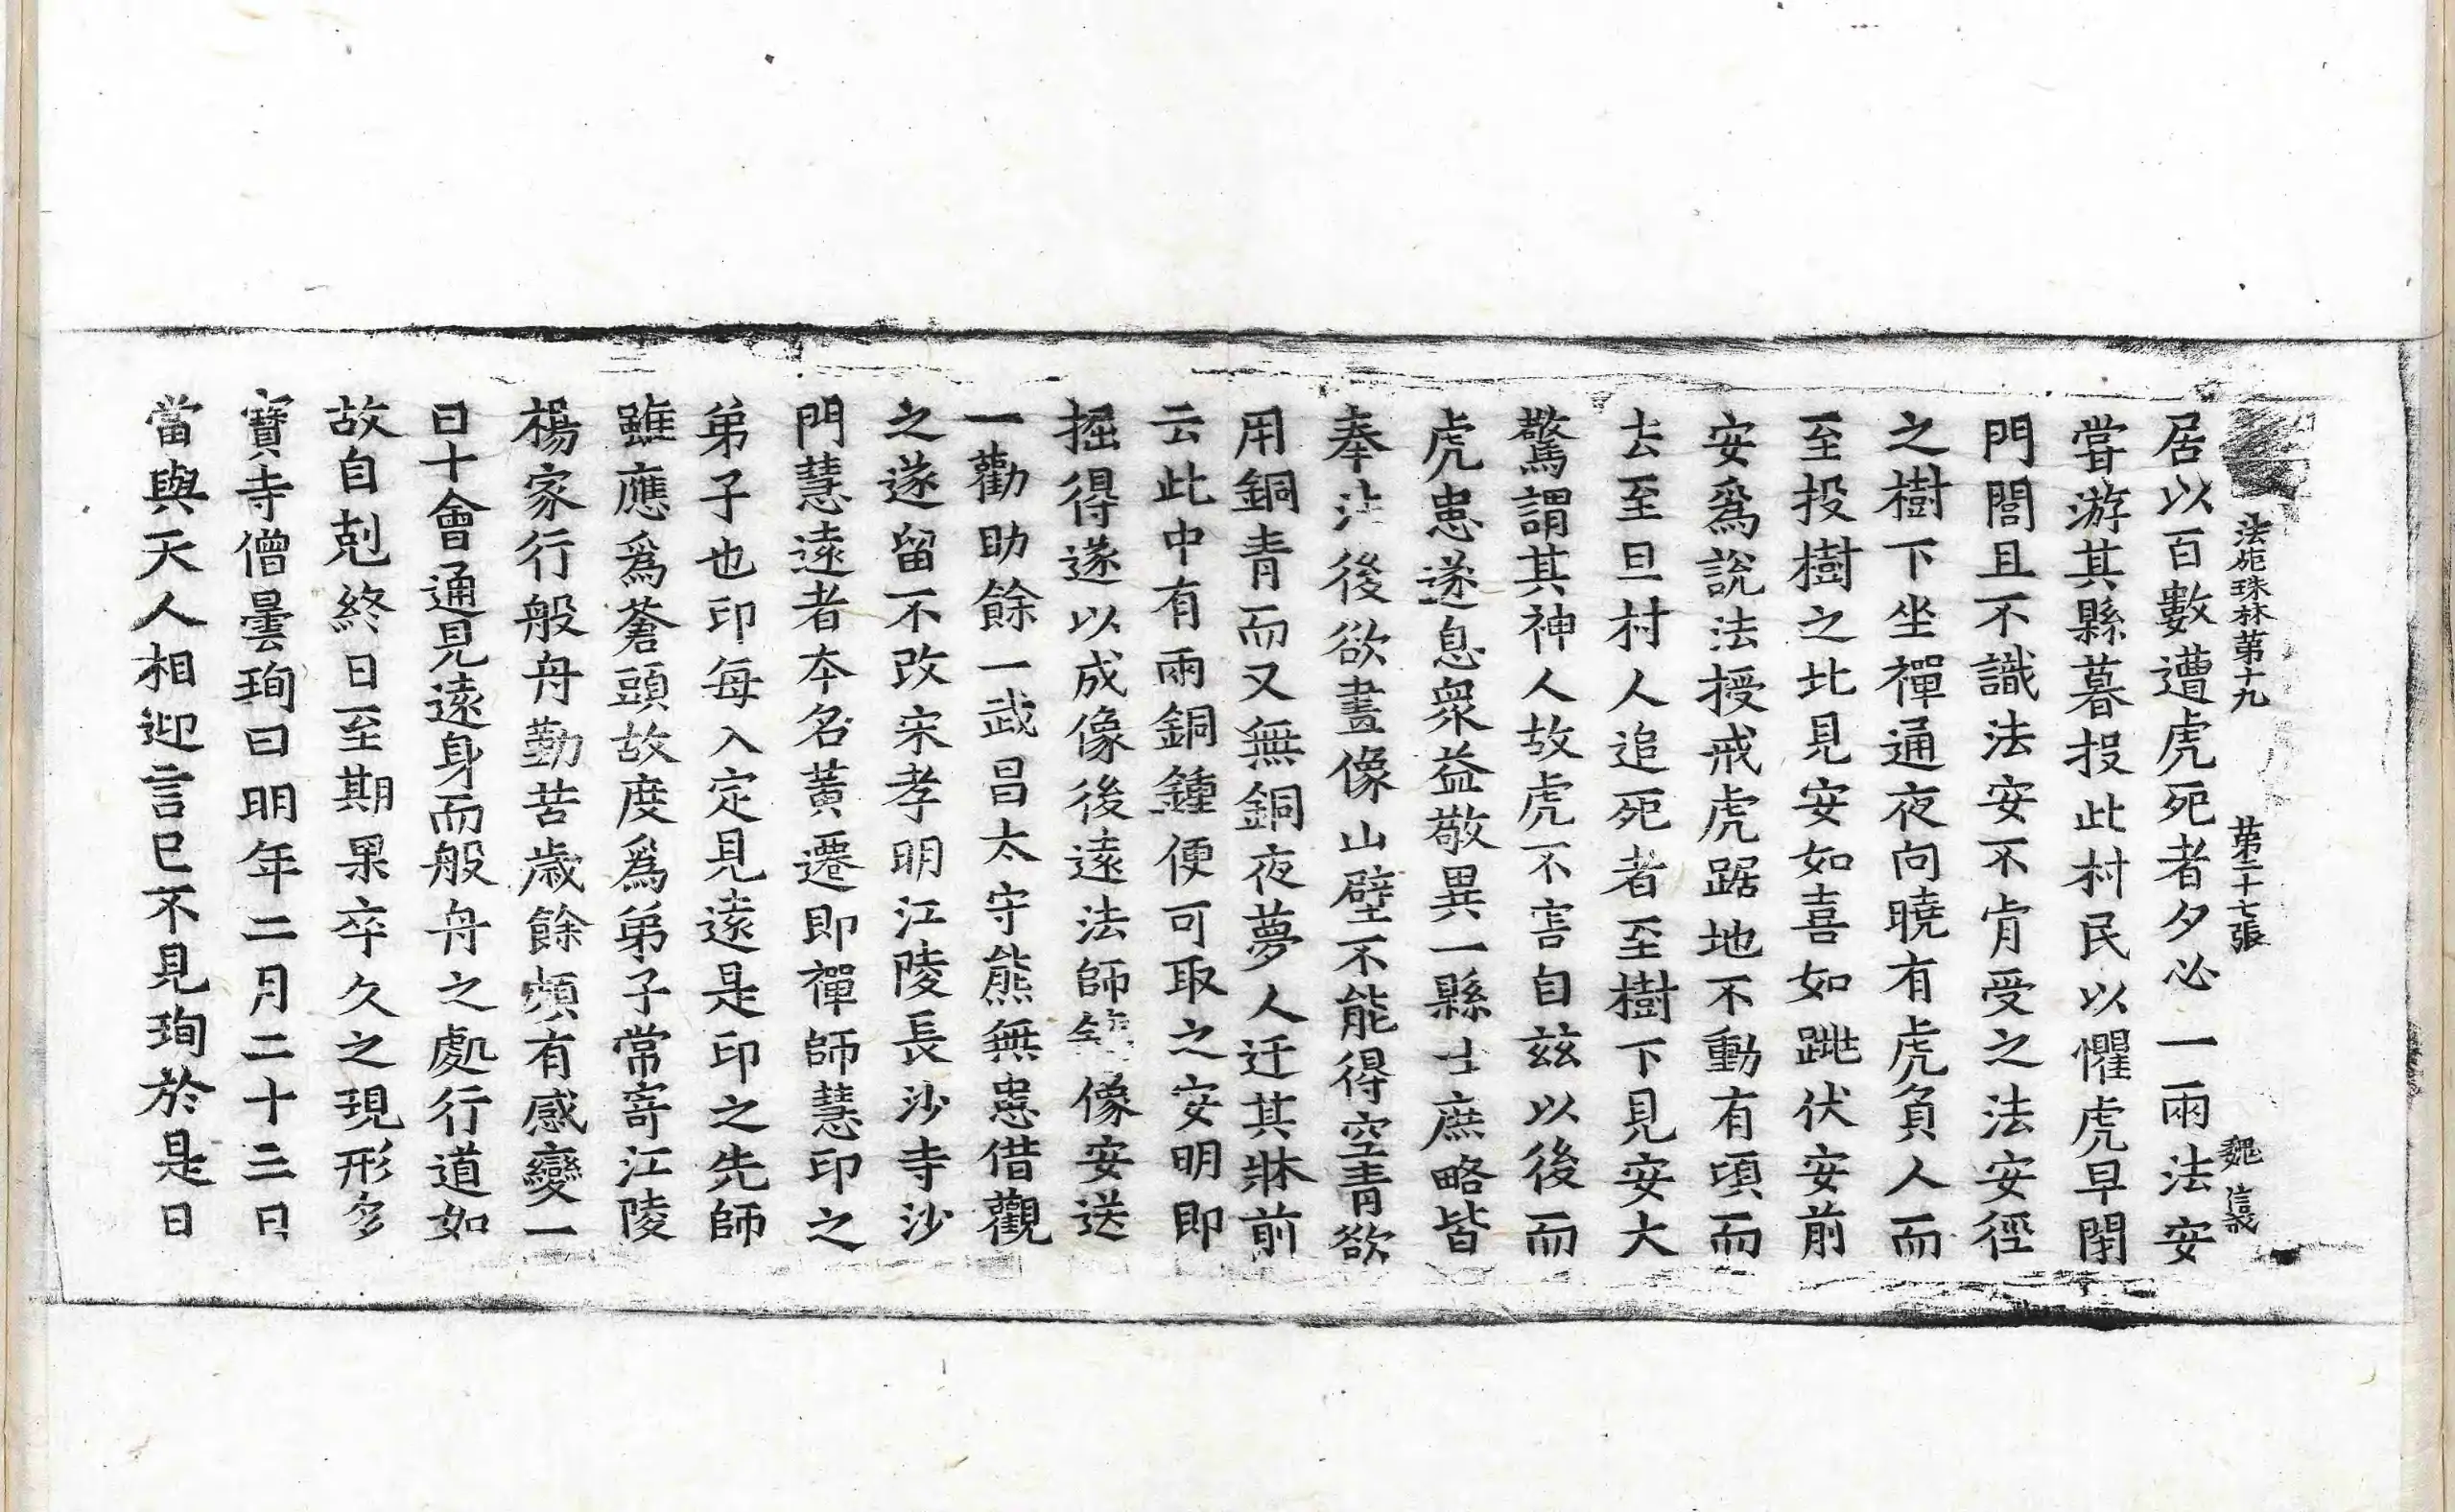 法苑珠林第十九 第二十七張 魏信義
居以百數遭虎死者夕必一兩法安
甞游其縣暮投此村民以懼虎早閉
門閭且不識法安不肯受之法安徑
之樹下坐禪通夜向曉有虎負人而
至投樹之北見安如喜如跳伏安前
安爲說法授戒虎踞地不動有頃而
去至旦村人追死者至樹下見安大
驚謂其神人故虎不害自兹以後而
虎患遂息衆益敬異一縣士庶略皆
奉法後欲畫像山壁不能得空青欲
用銅青而又無銅夜夢人迂其牀前
云此中有兩銅鍾便可取之安明即
掘得遂以成像後遠法師像安送
一勸助餘一武昌太守熊無患借觀
之遂留不改宋孝明江陵長沙寺沙
門慧遠者本名黃遷即禪師慧印之
弟子也印每入定見遠是印之先師
雖應爲蒼頭故度爲弟子常寄江陵
楊家行般舟勤苦歲餘頗有感變一
日十會通見遠身而般舟之處行道如
故自剋終日至期果卒久之現形多
寶寺僧曇珣曰明年二月二十三日
當與天人相迎言已不見珣於是日